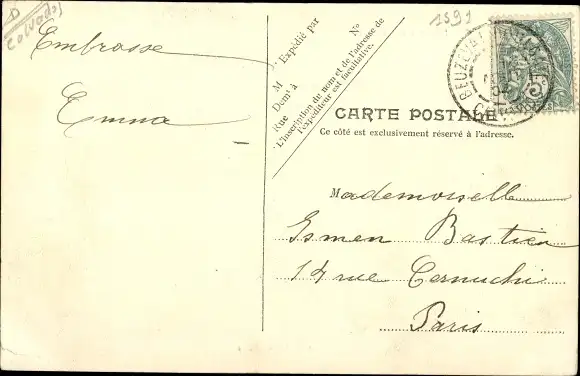 D
Calvados
1591
Embrasse
Emma
Nº
Expédié par
M
Demt à
Rue
L'inscription du nom et de l'adresse de
l'expéditeur est facultative.
CARTE POSTALE
Ce côté est exclusivement réservé à l'adresse.
BEUZEVAL
Mademoiselle
Ismen Bastien
14 rue Cernuchi
Paris